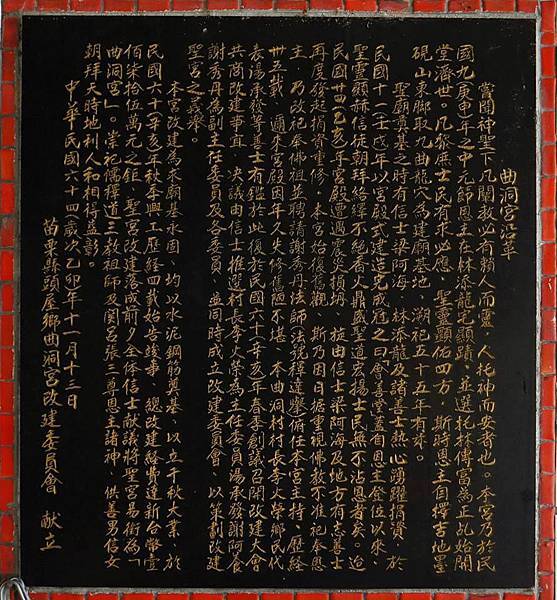 曲洞宮沿革
嘗聞神聖下凡闡教必有賴人而靈，人托神而安者也。本宮乃於民
國九(庚申)年之中元節恩主在林添龍宅顯蹟，並選托林傳富為正乩始開
堂濟世。凡黎庶士民有求必應，聖靈顯佑四方，斯時恩主自擇吉地墨
硯山東腳取九曲龍穴為建廟基地、溯祀五十五年有來。
聖廟奠基之時有信士梁阿海、林添龍及諸善士熱心湧躍捐資、於
民國十一(壬戌)年以宮殿式建造完成冠之曰會善堂蓋自恩主登位以來、
聖靈顯赫信徒朝拜絡繹不絕香火鼎盛聖道宏揚士民無不沾恩者矣。迨
民國廿四(乙亥)年宮殿遭遇震災損坍、旋由信士梁阿海及地方有志善士
再度發起捐資重修，本宮始復舊觀、斯乃因日据重視佛教不准祀奉恩
主、乃改祀奉佛祖並聘請謝秀丹法師(法號釋達擧)俯任本宮主持、歷經
卅五載、邇來宮殿因年久失修舊陋不堪、本曲洞村村長李火榮鄉民代
表湯承發等善士有鑑於此復於民國六十(辛亥)年春季創議召開改建大會
共商改建事宜、決議由信士推選村長李火榮為主任委員湯承發謝阿食
謝秀丹為副主任委員及各委員、並同時成立改建委員會、以策劃改建
聖宮之晟舉。
本宮改建為求廟基永固、均以水泥鋼筋奠基、以立千秋大業、於
民國六十(辛亥)年秋季興工歷經四載始告竣事、總改建經費達新台幣壹
佰柒拾伍萬元之鉅，聖宮改建落成前夕全体信士献議將聖宮易銜為「
曲洞宮」。崇祀儒釋道三教祖師及関呂張三尊恩主諸神、供善男信女
朝拜天時地利人和相得益彰。
中華民國六十四(歲次乙卯)年十一月十三日
苗栗縣頭屋鄉曲洞宮改建委員會　献立